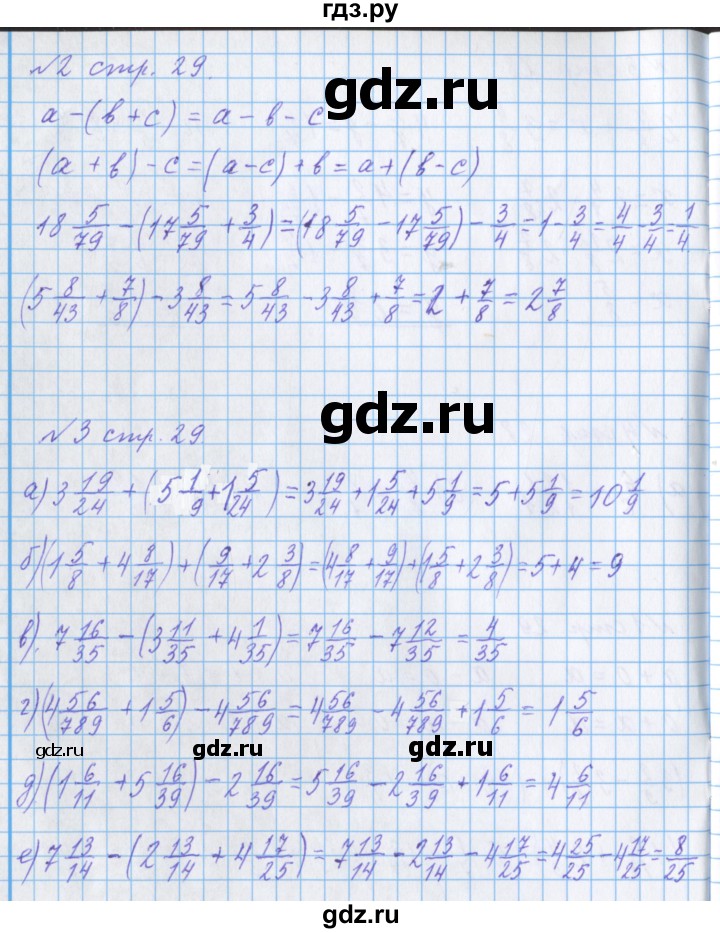 гдз.ру
№2 стр. 29.
gdz.ru
a-(b+c)=a-b-c
(a+b)-c=(a-c)+b=a+(b-c)
18 5/79 - (17 5/79 + 3/4) = (18 5/79 - 17 5/79) - 3/4 = 1 - 3/4 = 4/4 - 3/4 = 1/4
(5 8/43 + 7/8) - 3 8/43 = 5 8/43 - 3 8/43 + 7/8 = 2 + 7/8 = 2 7/8
gdz.ru
№3 стр. 29
а) 3 19/24 + (5 1/9 + 1 5/24) = 3 19/24 + 1 5/24 + 5 1/9 = 5 + 5 1/9 = 10 1/9
б) (1 5/8 + 4 8/17) + (9/17 + 2 3/8) = (4 8/17 + 9/17) + (1 5/8 + 2 3/8) = 5 + 4 = 9
в). 7 16/35 - (3 11/35 + 4 1/35) = 7 16/35 - 7 12/35 = 4/35
г) (4 56/789 + 1 5/6) - 4 56/789 = 4 56/789 - 4 56/789 + 1 5/6 = 1 5/6
gdz.ru gdz.ru
д) (1 6/11 + 5 16/39) - 2 16/39 = 5 16/39 - 2 16/39 + 1 6/11 = 4 6/11
е) 7 13/14 - (2 13/14 + 4 17/25) = 7 13/14 - 2 13/14 - 4 17/25 = 4 25/25 - 4 17/25 = 8/25
gdz.ru